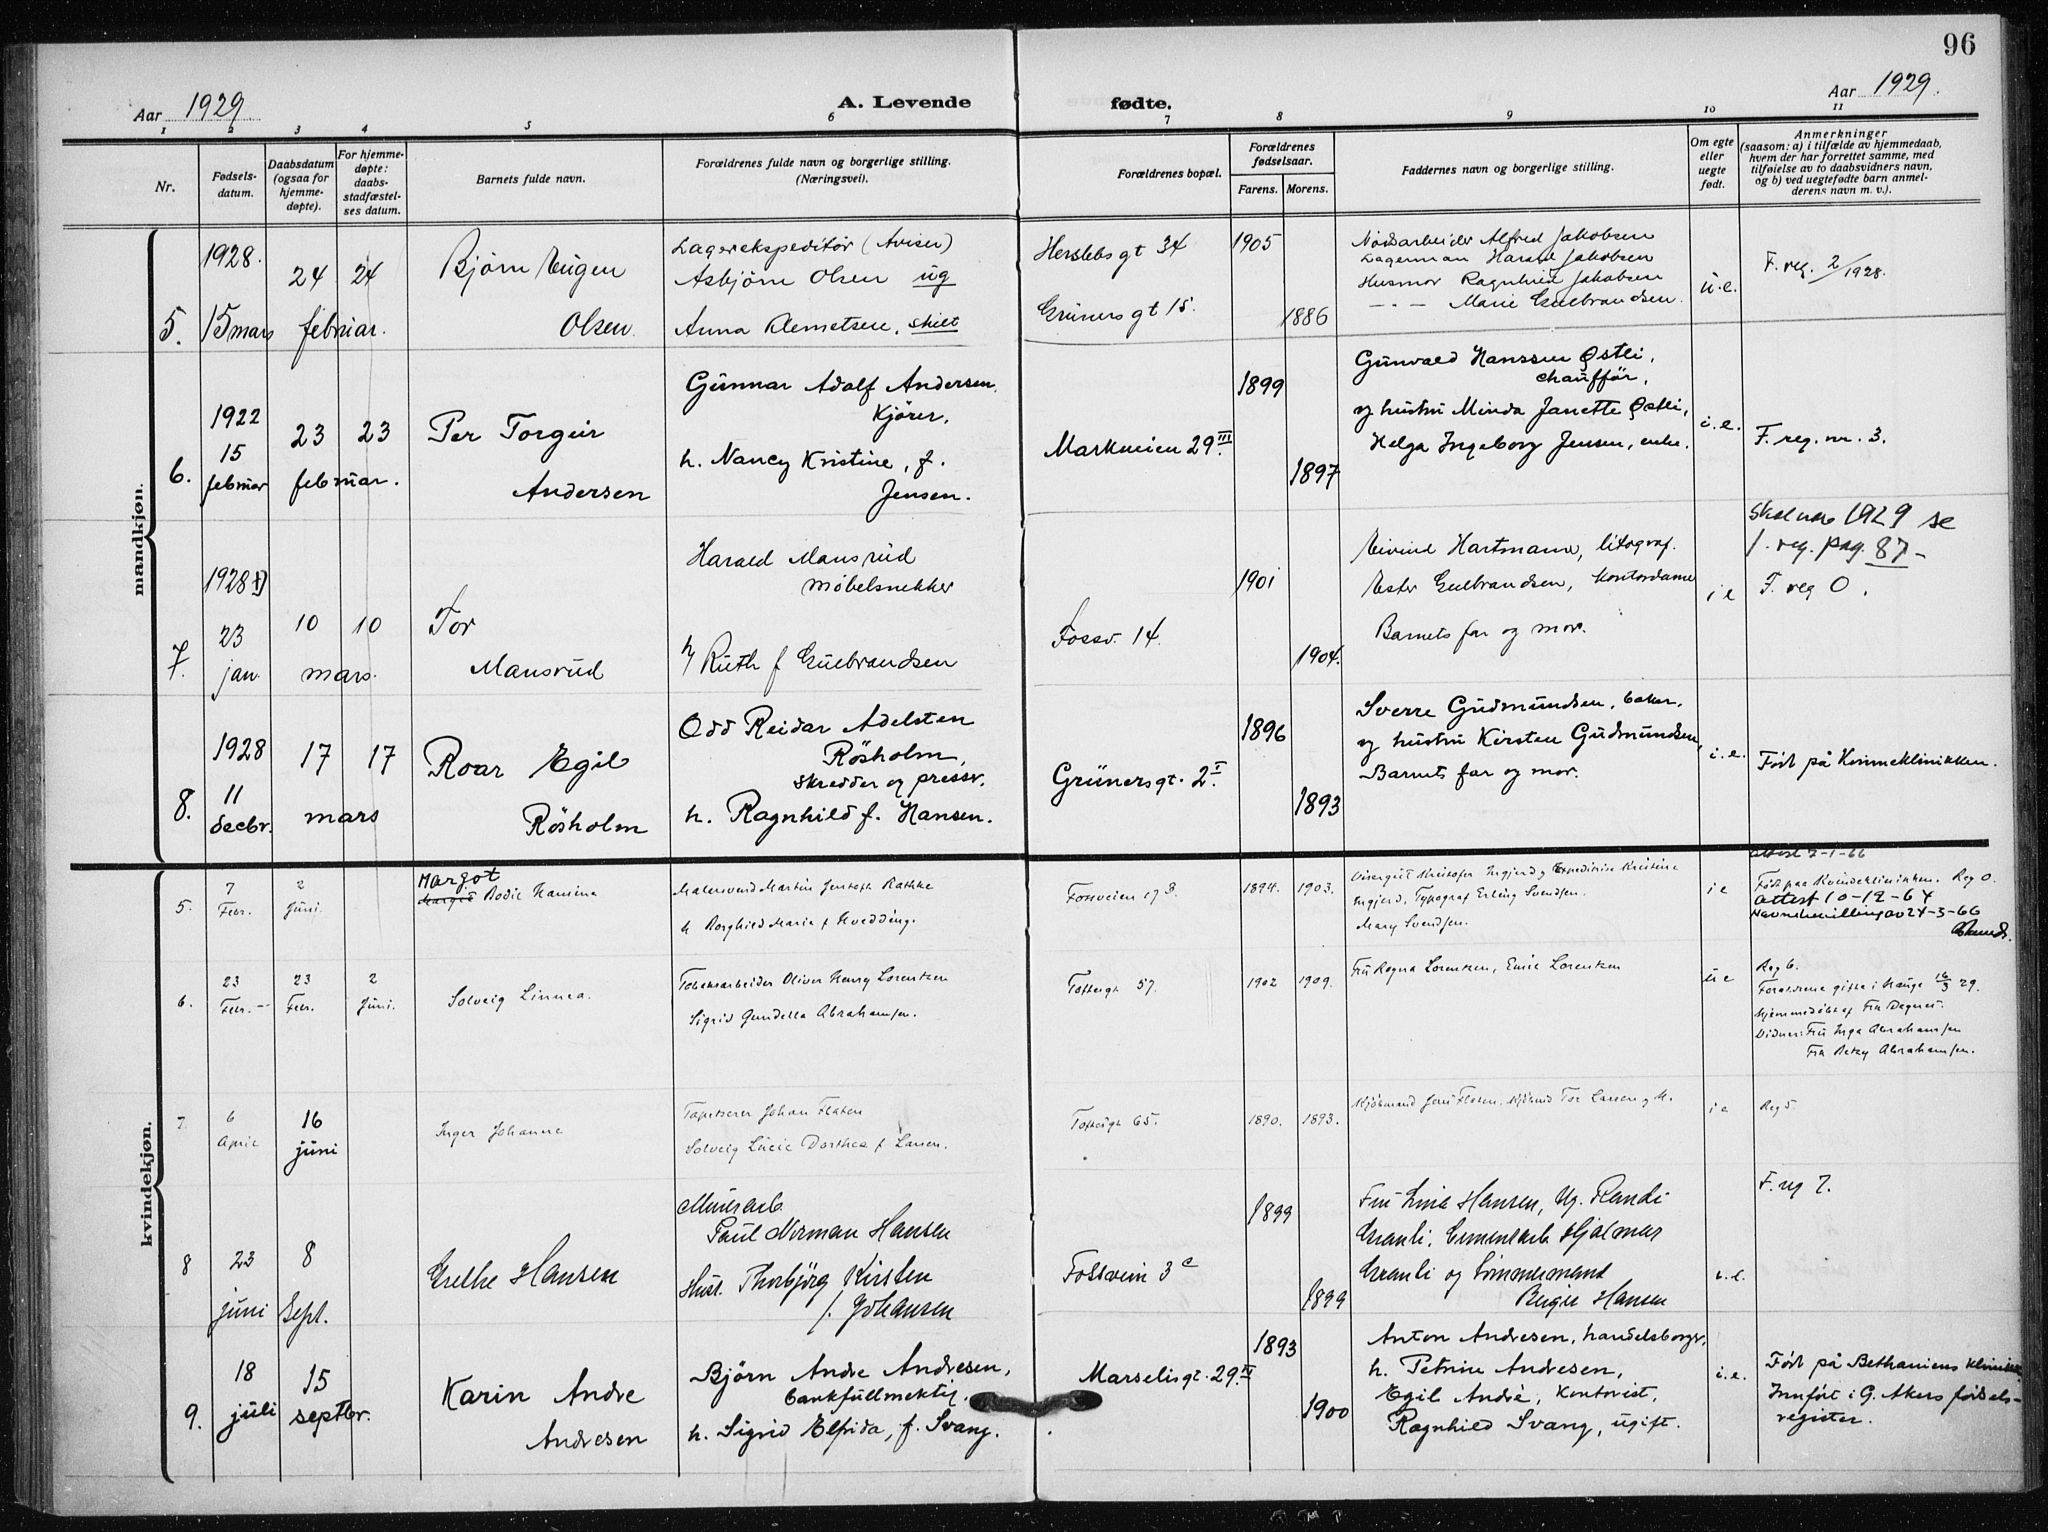 96
Aar 1929.
A. Levende fødte.
Aar 1929.
1 2 3 4 5 6 7 8 9 10 11
Nr.
Fødsels-
datum.
Daabsdatum
(ogsaa for
hjemme-
døpte).
For hjemme-
døpte:
daabs-
stadfæstel-
ses datum.
Barnets fulde navn.
Forældrenes fulde navn og borgerlige stilling.
(Næringsvei).
Forældrenes bopæl.
Forældrenes
fødselsaar.
Farens. Morens.
Faddernes navn og borgerlige stilling.
Om egte
eller
uegte
født.
Anmerkninger
(saasom: a) i tilfælde av hjemmedaab,
hvem der har forrettet samme, med
tilføielse av to daabsvidners navn,
og b) ved uegtefødte barn anmel-
derens navn m. v.).
mandkjøn.
5.
1928.
15 mars
24 24
februar.
Bjørn Eugen
Olsen
Lagerekspeditør (Aviser)
Asbjørn Olsen ug
Anna Klemetsen, skilt
Herslebs gt 34
Grüners gt 15.
1905
1886
Alfred Jakobsen
Lagermann Harald Jakobsen
Husmor Ragnhild Jakobsen
— " — Marie Gulbrandsen.
u.e.
F. reg. 2/1928.
6.
1922
15
februar
23 23
februar.
Per Torgeir
Andersen
Gunnar Adolf Andersen.
Kjører.
h. Nancy Kristine, f.
Jensen.
Markveien 29 III.
1899
1897
Gunvald Hanssen Østli,
chauffør,
og hustru Minda Janette Østli,
Helga Ingeborg Jensen, enke.
i.e.
F. reg. nr. 3.
7.
1928
23
jan.
10 10
mars.
Tor
Mansrud
Harald Mansrud
Møbelsnekker
h/ Ruth f Gulbrandsen
Fossv. 14.
1901
1904.
Eivind Hartmann, litograf.
Ester Gulbrandsen, Kontordame
Barnets far og mor.
i e
1929 se
f. reg. pag. 87-
F. reg 0.
8.
1928
11
decbr.
17 17
mars
Roar Egil
Røsholm
Odd Reidar Adelsten
Røsholm,
skredder og pressr.
h. Ragnhild f. Hansen.
Grünersgt. 2 I.
1896
1893
Sverre Gudmundsen, baker,
og hustru Kirsten Gudmundsen,
Barnets far og mor.
i.e.
Født på Kvinneklinikken.
kvindekjøn.
5.
7
Febr.
2
Juni.
Margot
Margit Bodil Hansina
Martin Jentoft Rathke
h Borghild Maria f Kvedding.
Fossveien 17 B.
1894. 1903.
Ingjerd, Typograf Erling Svendsen.
Mary Svendsen.
i e
attest 7-1-66
Født paa Kvindeklinikken. Reg 0.
attest 10-12-64
Navnebevilling av 24-3-66
6.
23
Febr.
23
Febr.
2
Juni.
Solveig Linnea.
Tobaksarbeider Oliver Henry Lorentzen
Sigrid Gundella Abrahamsen.
Toftesgt 57.
1902 1909.
Fru Ragna Lorentzen, Emil Lorentzen
u e
Reg 6.
Forældrene gifte i Hauge 16/3 29.
Hjemmedøbt af Fru Dagned.
Vidner: Fru Inga Abrahamsen
Fru Betzy Abrahamsen.
7.
6
April
16
juni
Inger Johanne
Tapetserer Johan Flaten
Solveig Lucie Dorthea f Larsen.
Toftesgt 65.
1890. 1893.
Kjøbmand Jens Flaten, Kjøbmd Tor Larsen og M.
i e
Reg 5.
8
23
juni
8
Sept.
Grethe Hansen
Murarb.
Paul Nirman Hansen
Hust. Thorbjørg Kirsten
f. Johansen
Fossvein 3 c
1899
1899
Fru Lina Hansen, Ug. Randi
Granli, Cementarb Hjalmar
Granli og Tømmermand
Birger Hansen
i.e.
F. reg 7.
9.
18
juli
15
septbr.
Karin Andre
Andresen
Bjørn Andre Andresen,
bankfullmektig,
h. Sigrid Elfrida, f. Svang.
Marselisgt. 29 IV.
1893
1900
Anton Andresen, handelsborger,
h. Petrine Andresen,
Egil André, Kontorist,
Ragnhild Svang, ugift.
i.e.
Født på Bethaniens klinikk.
Innført i G. Akers fødsels-
register.